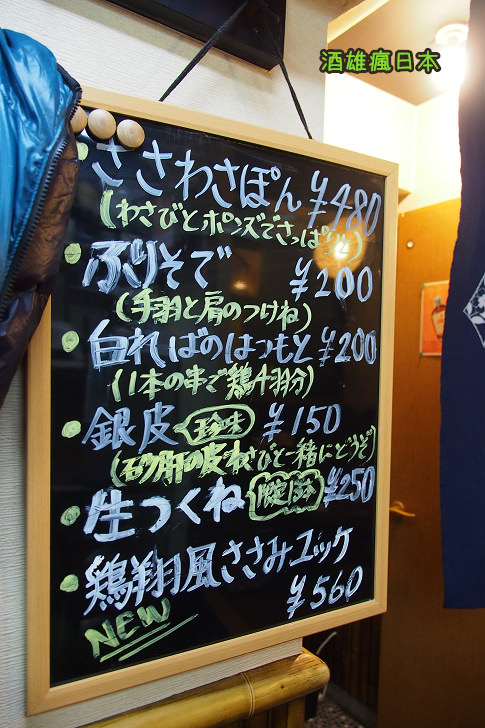 酒雄瘋日本
ささわさぽん ¥480
(わさびとポンズでさっぱりと)
ぶりそで ¥200
(手羽と肩のつけね)
白ればのはつもと ¥200
(1本の串で鶏4羽分)
銀皮 珍味 ¥150
(砂肝の皮わさびと一緒にどうぞ)
生つくね 限定18本 ¥250
鶏翔風ささみユッケ
¥560
NEW